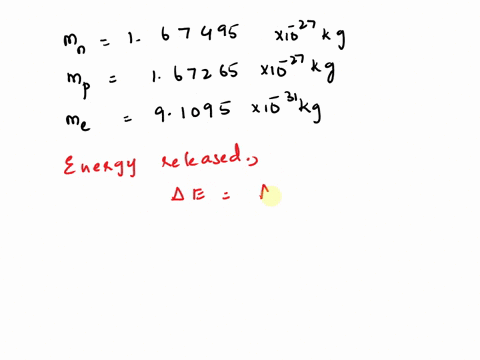 mn = 1. 67495 x10^-27 kg
mp = 1.67265 x10^-27 kg
me = 9.1095 x10^-31 kg
Energy released.,
Δ E =